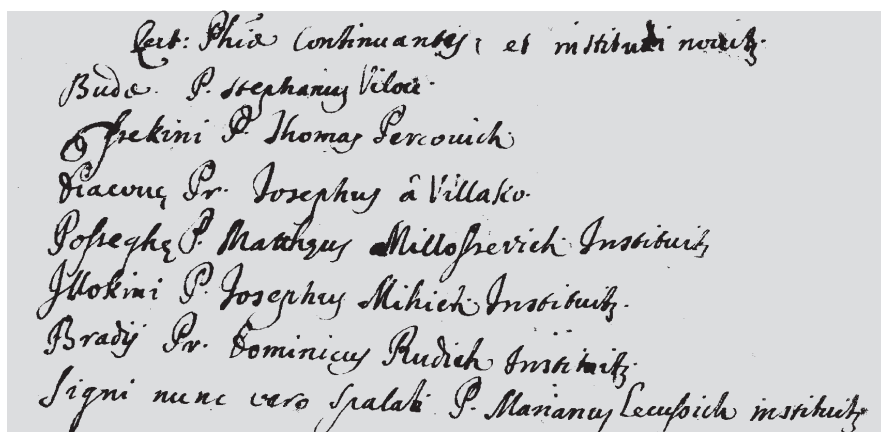 Lect: Phiae continuantes, et instituti noviter.
Budae. P. Stephanus Vilov.
Essekini P. Thomas Percovich.
Diacovae Pr. Josephus â Villako.
Possegae P. Matthaeus Millossevich Instituitr
Illokini P. Josephus Mihich Instituitr.
Bradij Pr. Dominicus Rudich Instituitr.
Signi nunc vero Spalati P. Marianus Lecussich instituitr